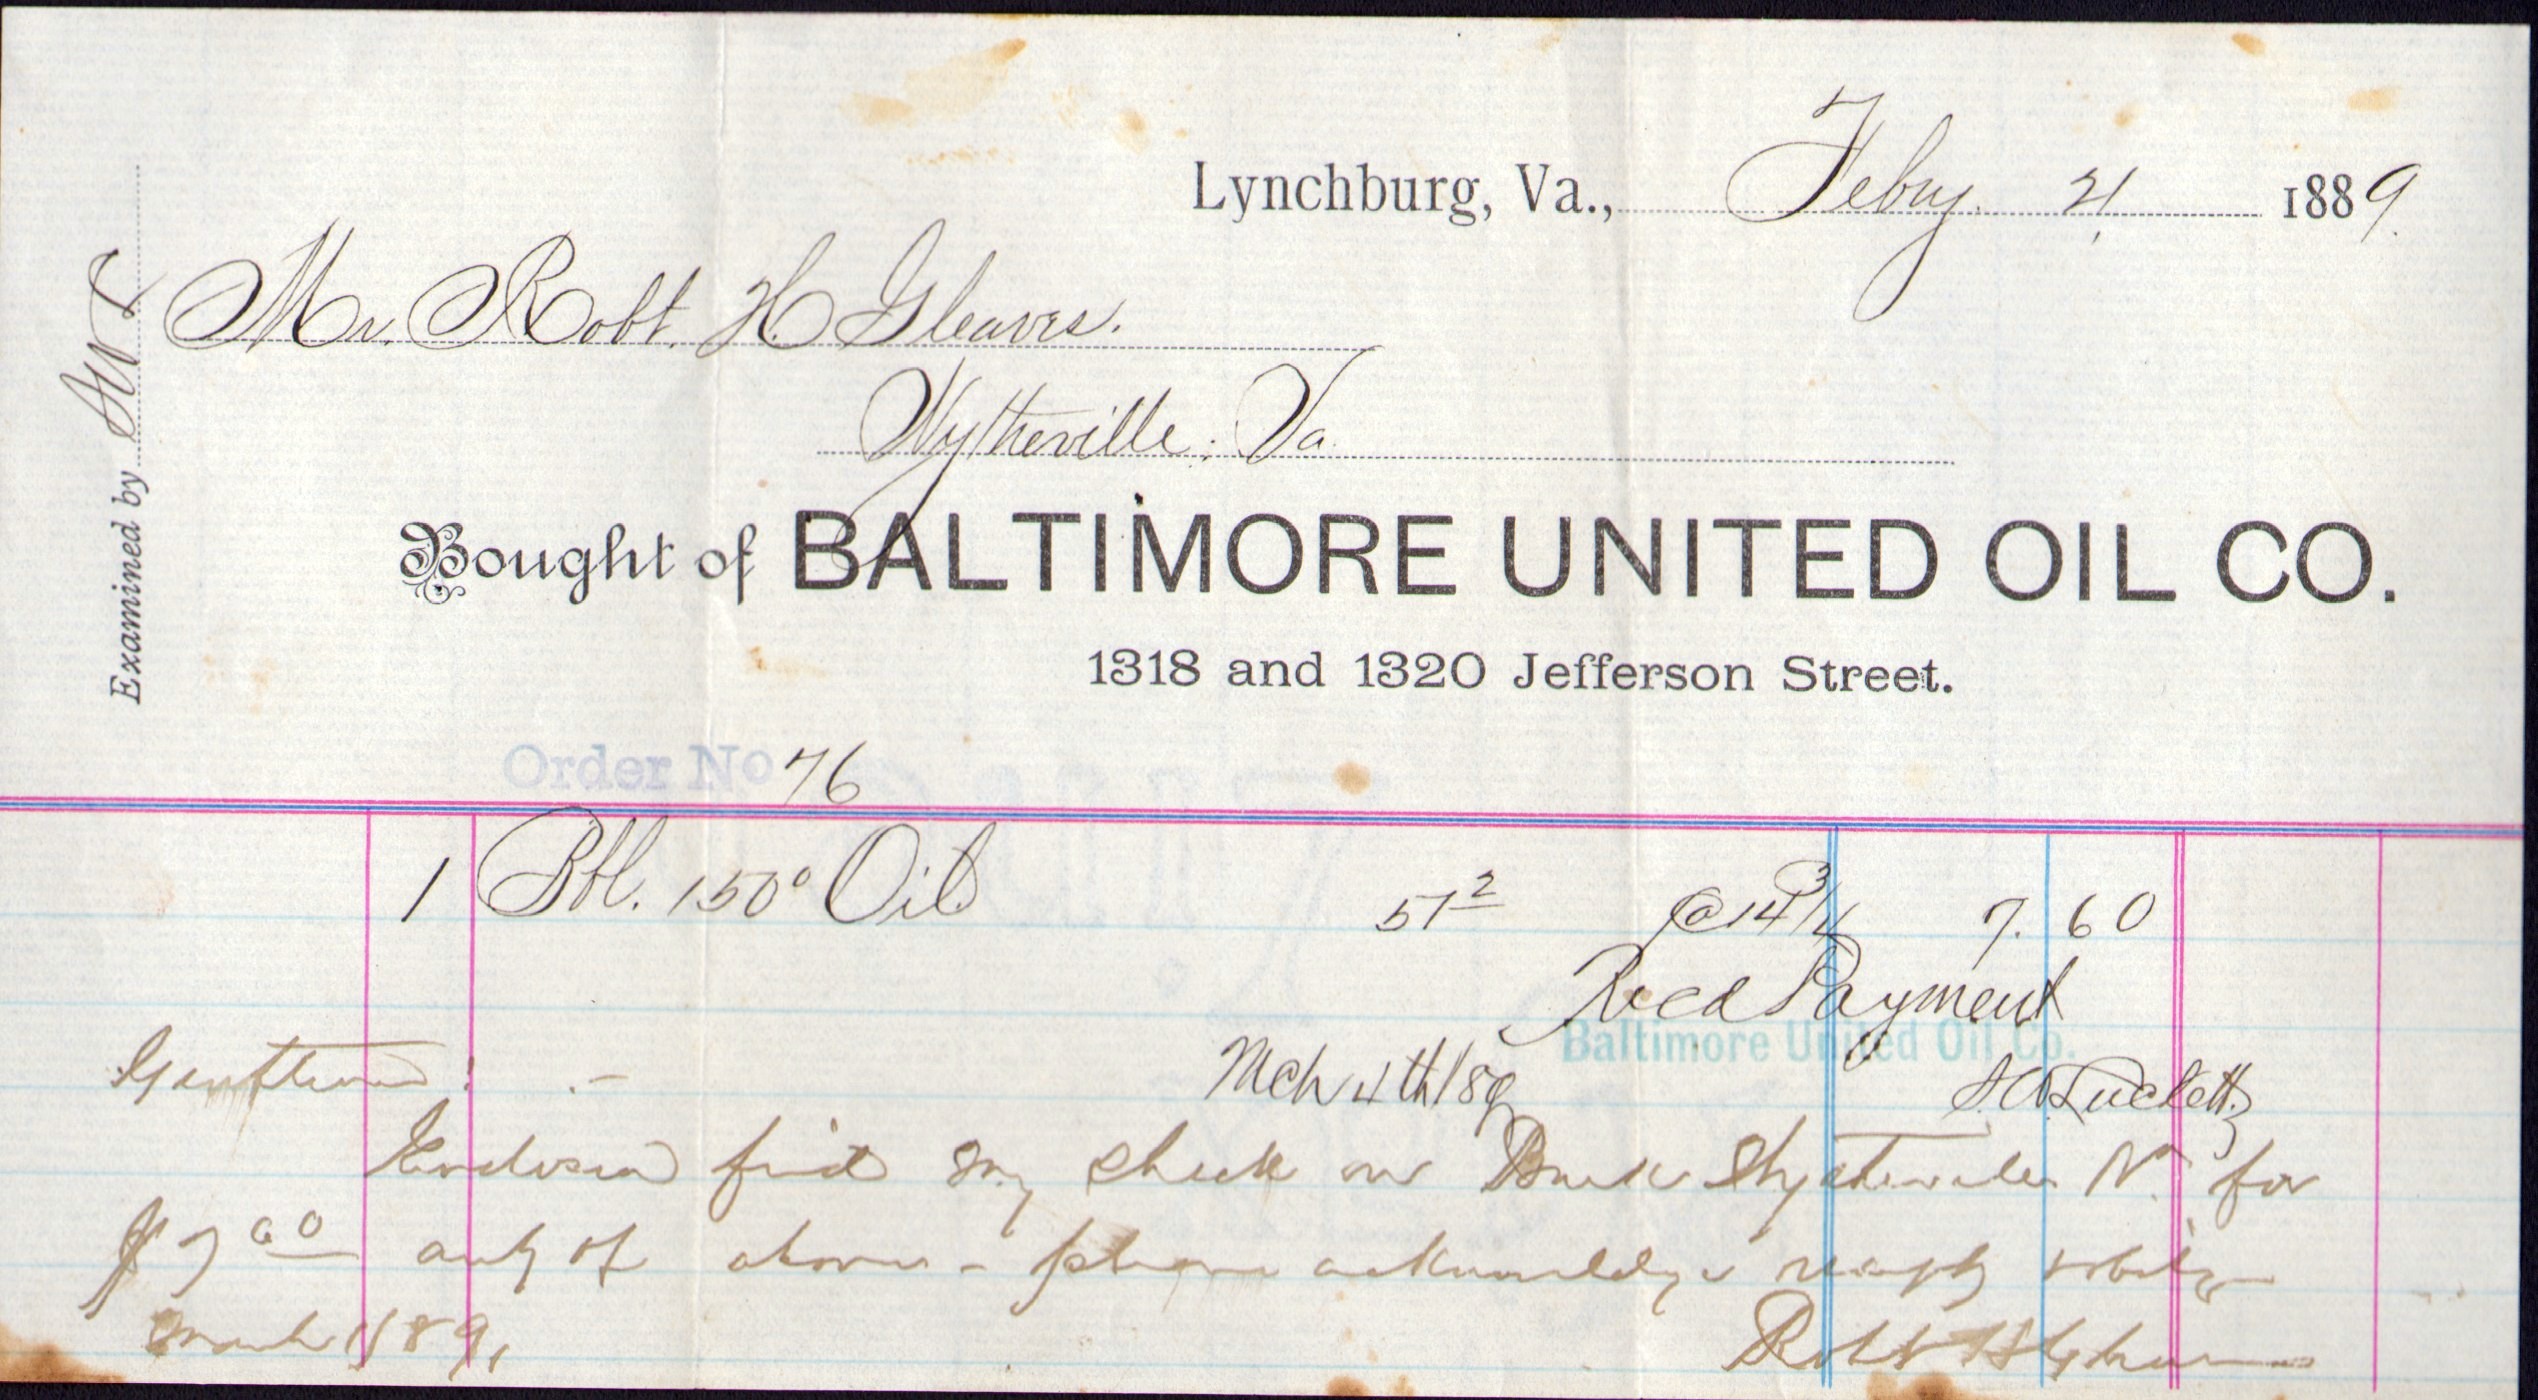 Lynchburg, Va., Febry. 21, 1889.
Mr. Robt. H. Gleaves.
Wytheville, Va.
Examined by
Bought of BALTIMORE UNITED OIL CO.
1318 and 1320 Jefferson Street.
Order No 76
1 Bbl. 150° Oil 51 2 @ 14 3/4 7.60
Recd Payment
Baltimore United Oil Co.
Mch 4th/89 Luckett
Gentlemen! -
Enclosed find my check on Bank Wytheville Va for
$7 60 amt of above - please acknowledge receipt & oblige
March 1/89, Robt H Gleaves